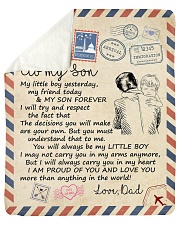 To my Son
My little boy yesterday,
my friend today
& MY SON FOREVER
I will try and respect
the fact that
The decisions you will make
are your own. But you must
understand that to me.
You will always be my LITTLE BOY
I may not carry you in my arms anymore,
But I will always carry you in my heart
I AM PROUD OF YOU AND LOVE YOU
more than anything in the world!
Love, Dad